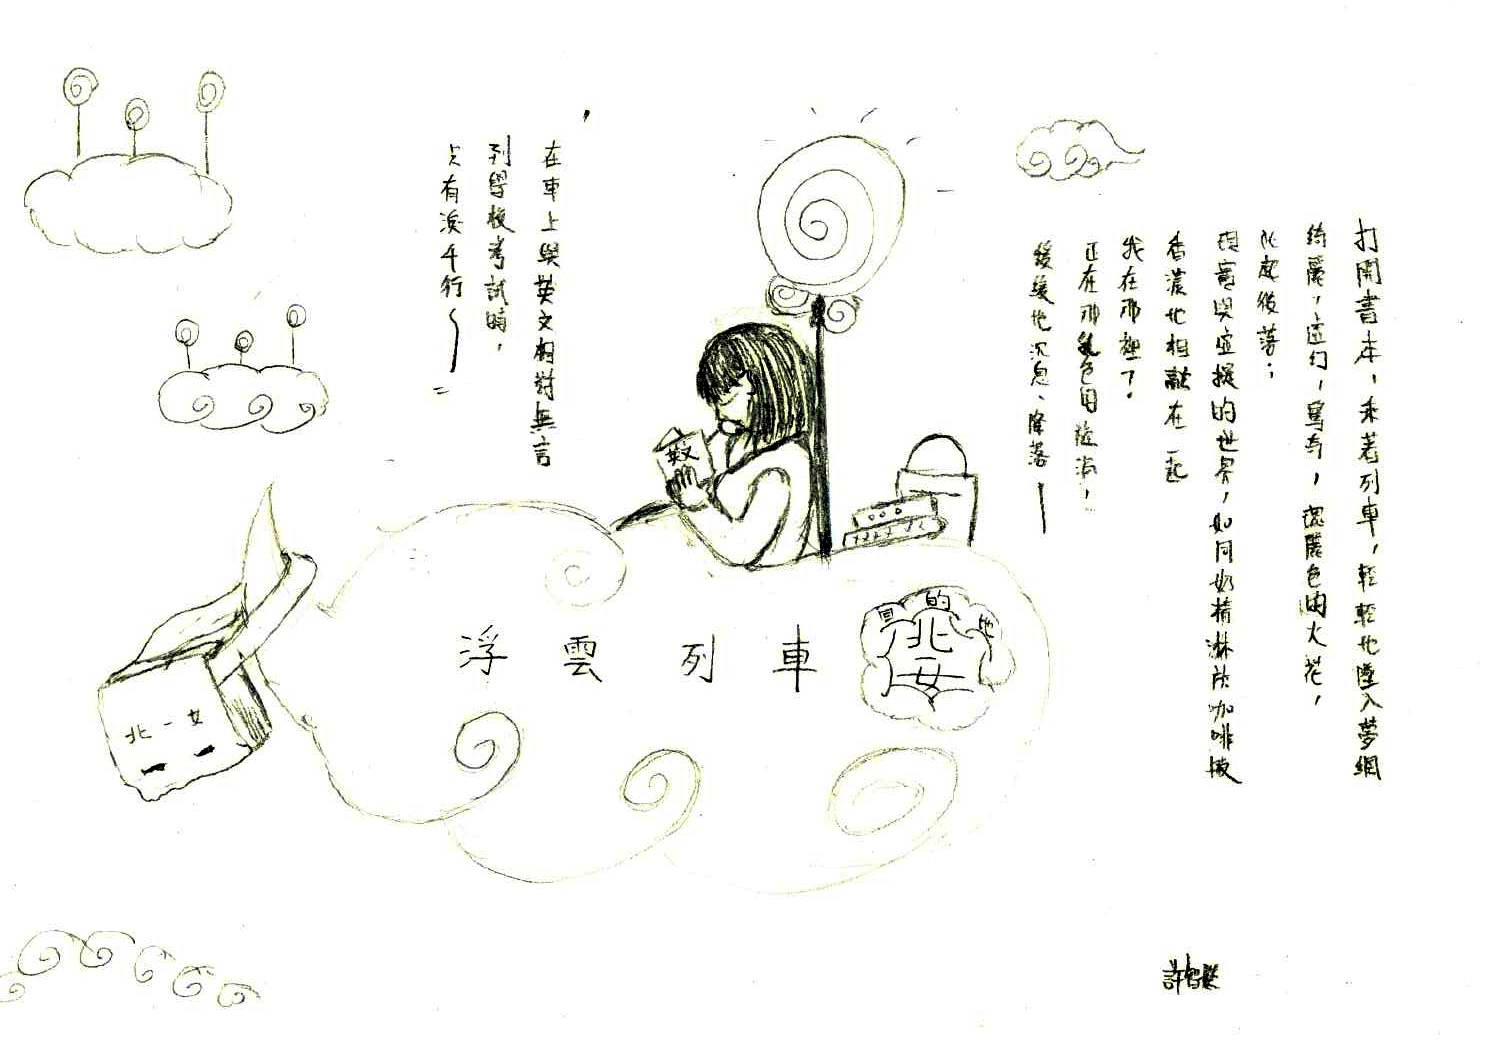 打開書本，乘著列車，輕輕地墜入夢網
綺麗，虛幻，驚奇，瑰麗色的火花，
此起彼落；
現實與虛擬的世界，如同奶精淋於咖啡
香濃地相融在一起
我在那裡了。
正在那乳色
緩緩地沉息、降落——
在車上與英文相對無言
到學校考試時，
只有淚千行～
英文
浮雲列車
的
北
女
北一女
許